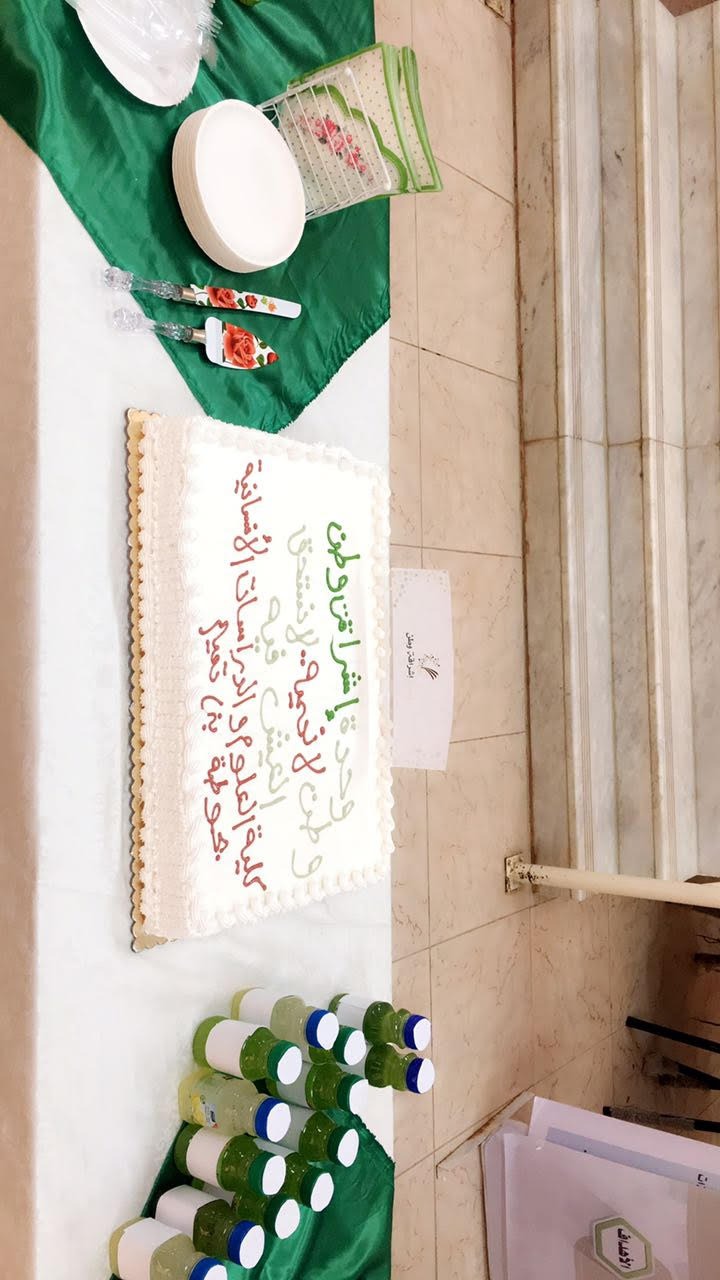 وحدة إشراقة وطن
وطن لا نحميه.. لا نستحق
العيش فيه
كلية العلوم والدراسات الأنسانية
بحوطة بني تميم
إشراقة وطن
الأهداف